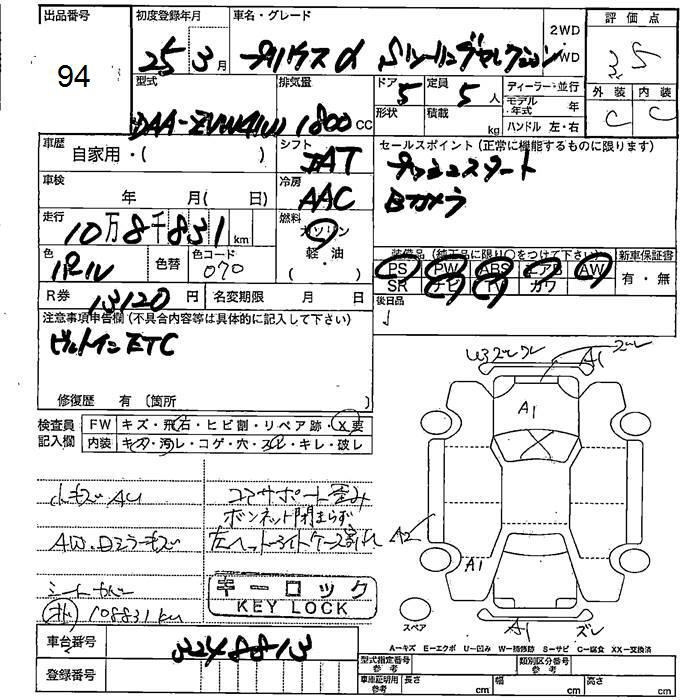 出品番号
94
初度登録年月
25 3月
車名・グレード
プリウスα Sツーリングセレクション
2WD
WD
評価点
3.5
外装 内装
C C
型式
DAA-ZVW41W
排気量
1800cc
ドア
5
形状
定員
5人
積載
kg
ディーラー・並行
モデル・年式 年
ハンドル 左・右
車歴
自家用・( )
シフト
FAT
セールスポイント(正常に機能するものに限ります)
プッシュスタート
Bカメラ
車検
年 月( 日)
冷房
AAC
走行
10万8千831km
燃料
ガソリン
軽・油
色
パール
色替
色コード
070
装備品(純正品に限り○をつけて下さい)
PS PW ABS エアB AW
SR ナビ TV カワ
新車保証書
有・無
R券 13120円
名変期限 月 日
後日品
注意事項申告欄(不具合内容等は具体的に記入して下さい)
ビルトインETC
修復歴 有 〔箇所
検査員記入欄
FW キズ・飛石・ヒビ割・リペア跡・X要
内装 キズ・汚レ・コゲ・穴・スレ・キレ・破レ
小キズAU
コアサポート歪み
ボンネット閉まらず
AW.Dミラーキズ
左ヘッドライトケース割れ
シートカバー
108831km
キーロック
KEY LOCK
W3ズレワレ
A1
ズレ
A1
A2
A1
スペア
A1
ズレ
A-キズ E-エクボ U-凹み W-補修跡 S-サビ C-腐食 XX-交換済
車台番号
3248813
登録番号
型式指定番号
参考
類別区分番号
参考
車庫証明用
参考
長さ cm
幅 cm
高さ cm